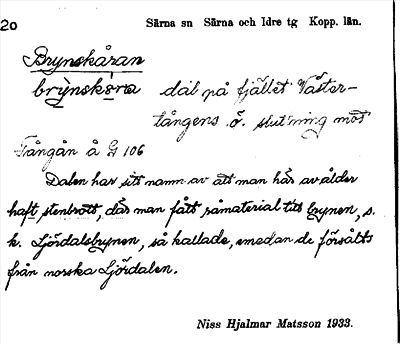 20 Särna sn Särna och Idre tg Kopp. län.
Brynskåran
brỳnskǝra dal på fjället Väster-
tångens ö. sluttning mot
Fångån å G 106
Dalen har sitt namn av att man här av ålder
haft stenbrott, där man fått råmaterial till brynen, s.
k. Ljördalsbrynen, så kallade, emedan de försålts
från norska Ljördalen.
Niss Hjalmar Matsson 1933.